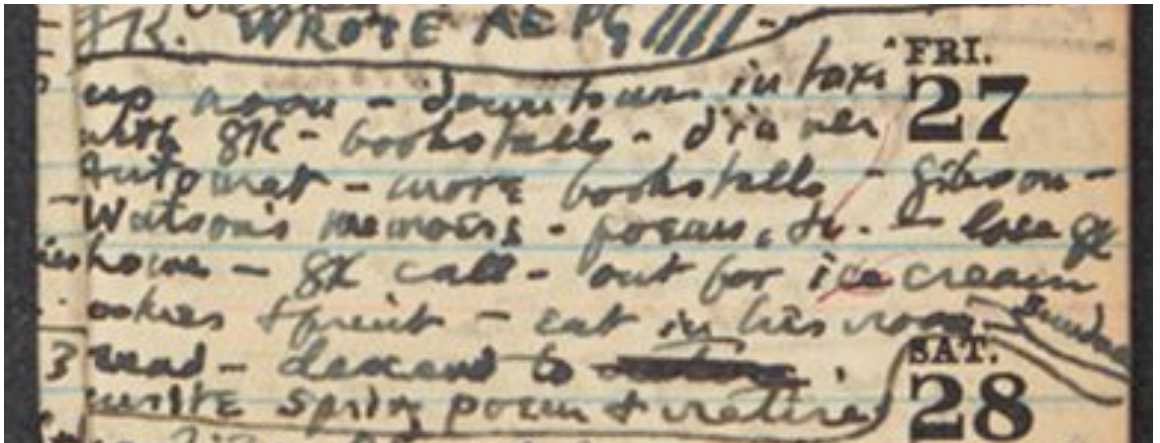 GK. WROTE AEPG
FRI.
27
up noon - downtown in taxi
with GK - bookstalls - dinner
Automat - more bookstalls - Gibson -
Watson's memoirs - poems, etc. - lose GK
home - GK call - out for ice cream
cookies + fruit - eat in his room.
3 read - descend to
write spring poem + retire
SAT.
28